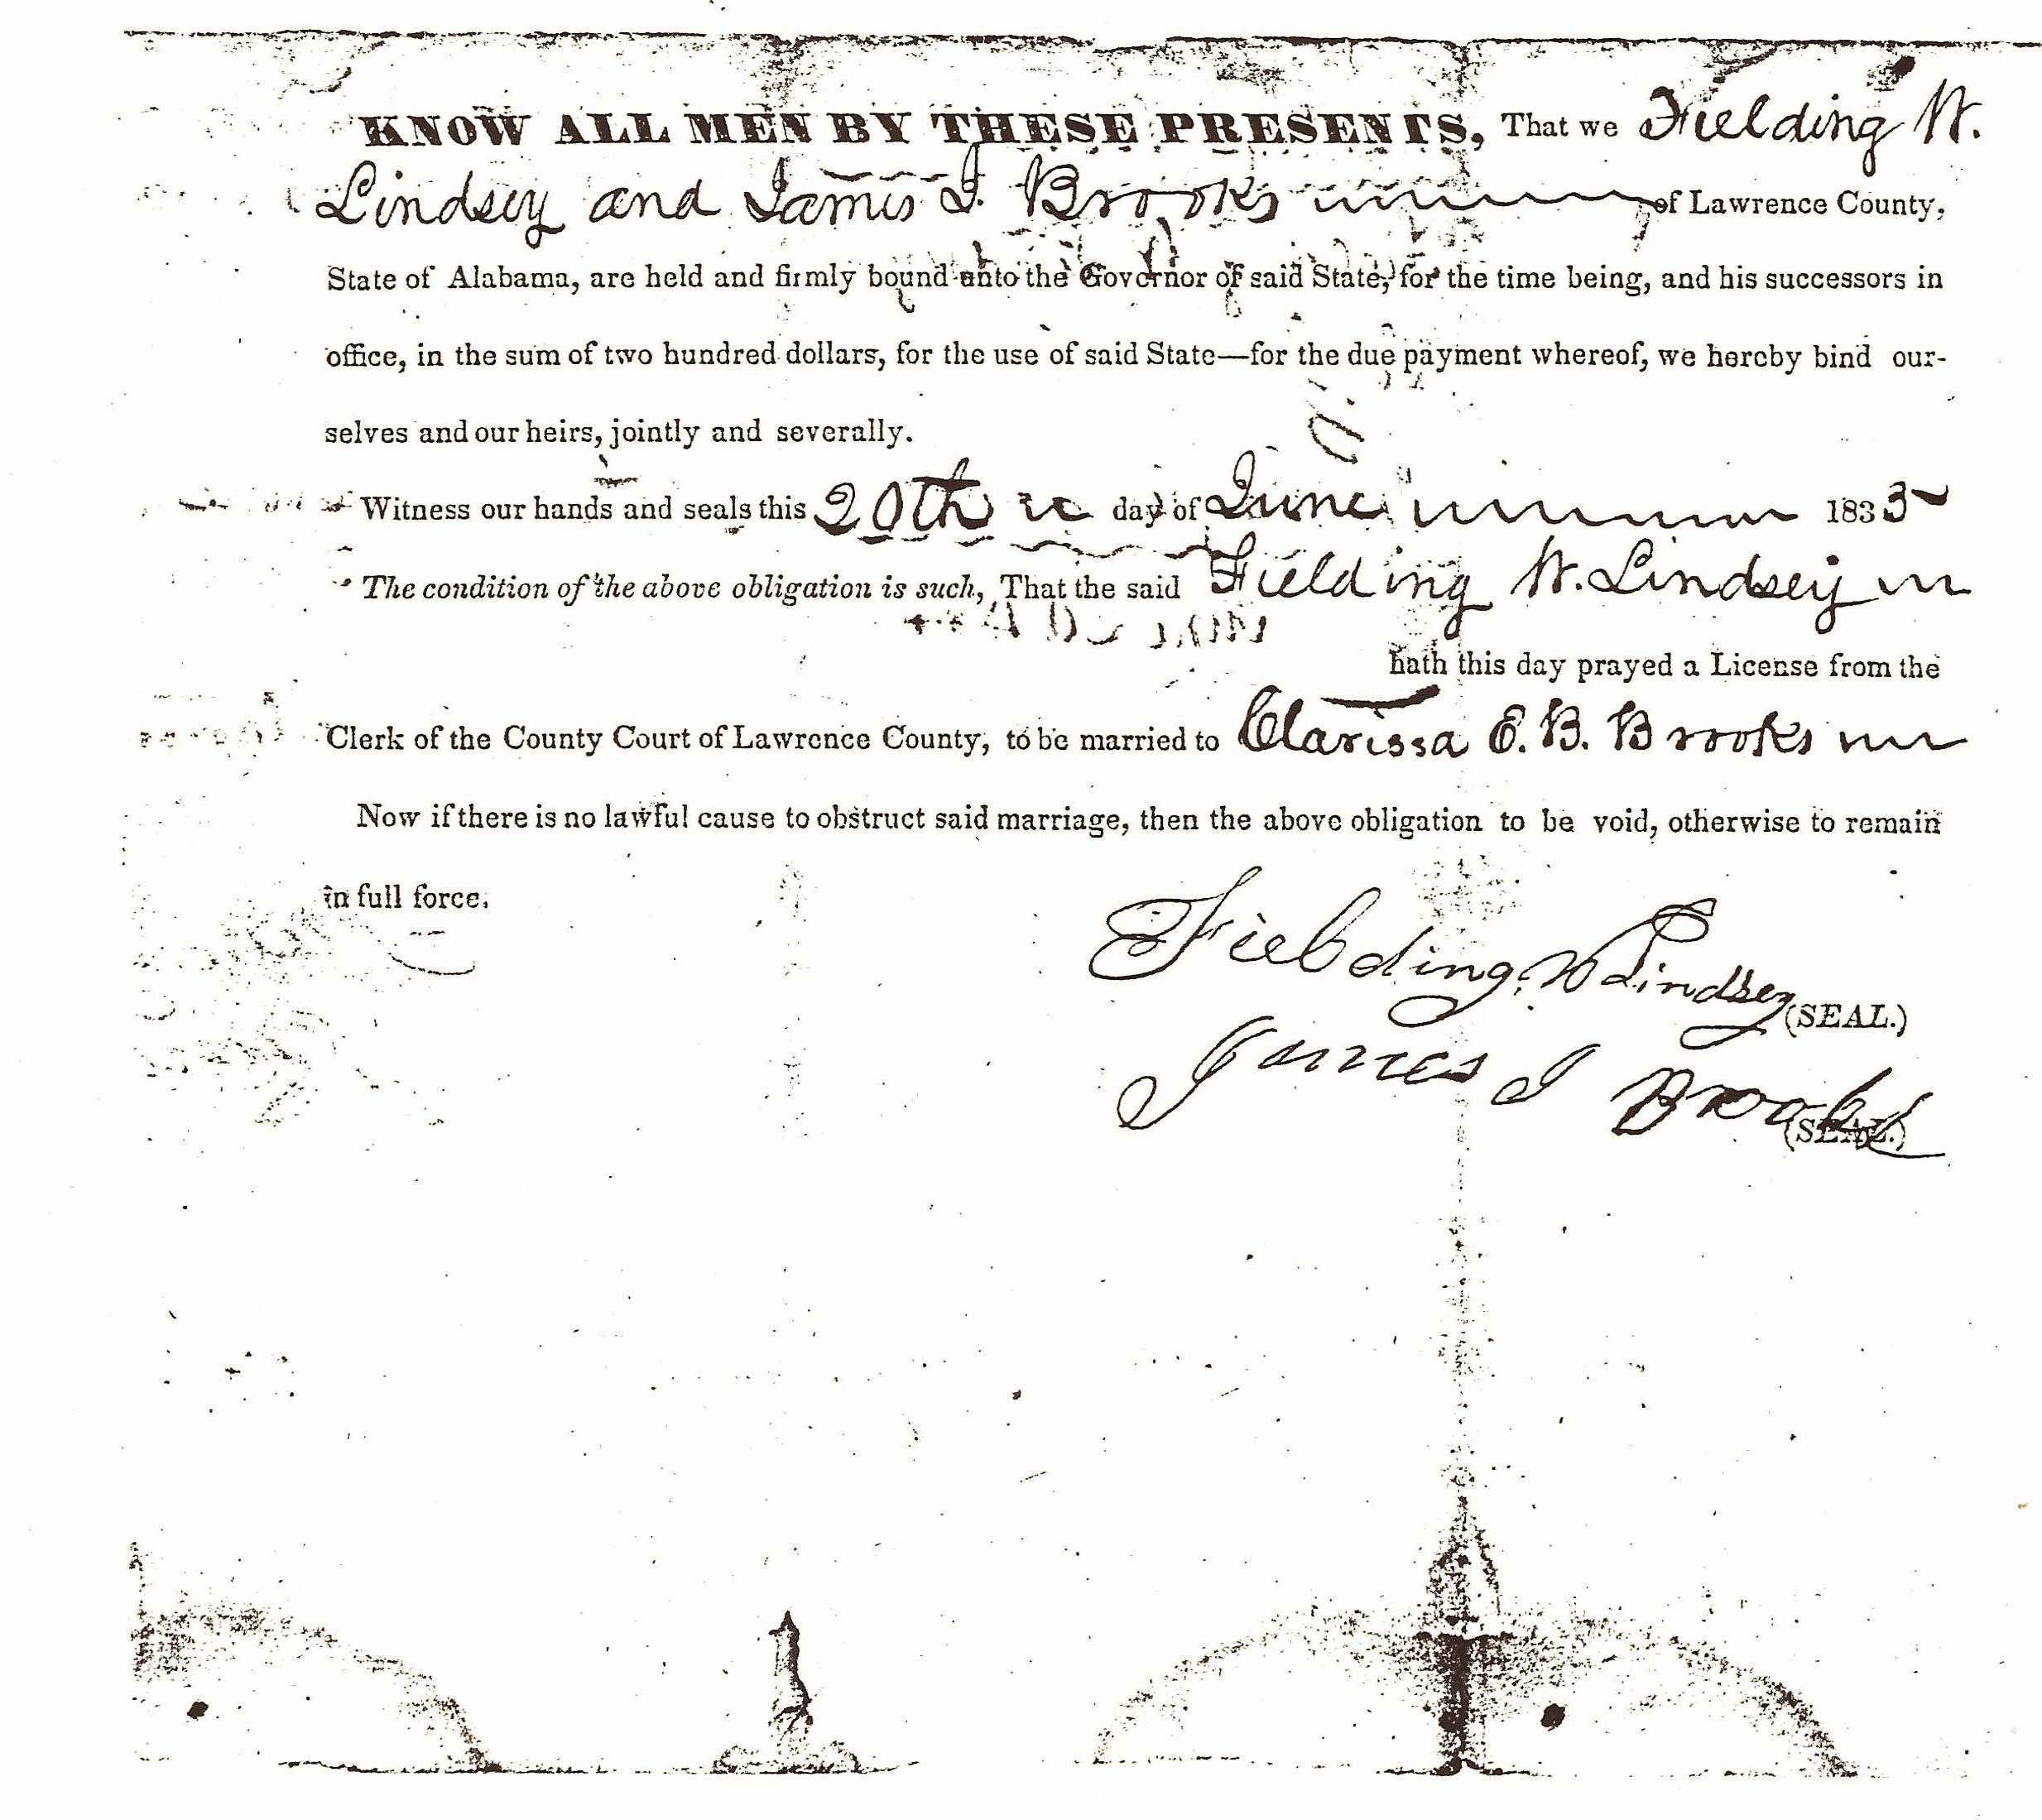 KNOW ALL MEN BY THESE PRESENTS, That we Fielding W.
Lindsey and James I. Brooks of Lawrence County,
State of Alabama, are held and firmly bound unto the Governor of said State, for the time being, and his successors in
office, in the sum of two hundred dollars, for the use of said State—for the due payment whereof, we hereby bind our-
selves and our heirs, jointly and severally.
Witness our hands and seals this 20th day of June 1835
The condition of the above obligation is such, That the said Fielding W. Lindsey
hath this day prayed a License from the
Clerk of the County Court of Lawrence County, to be married to Clarissa E. B. Brooks
Now if there is no lawful cause to obstruct said marriage, then the above obligation to be void, otherwise to remain
in full force.
Fielding W Lindsey (SEAL.)
James I Brooks (SEAL.)